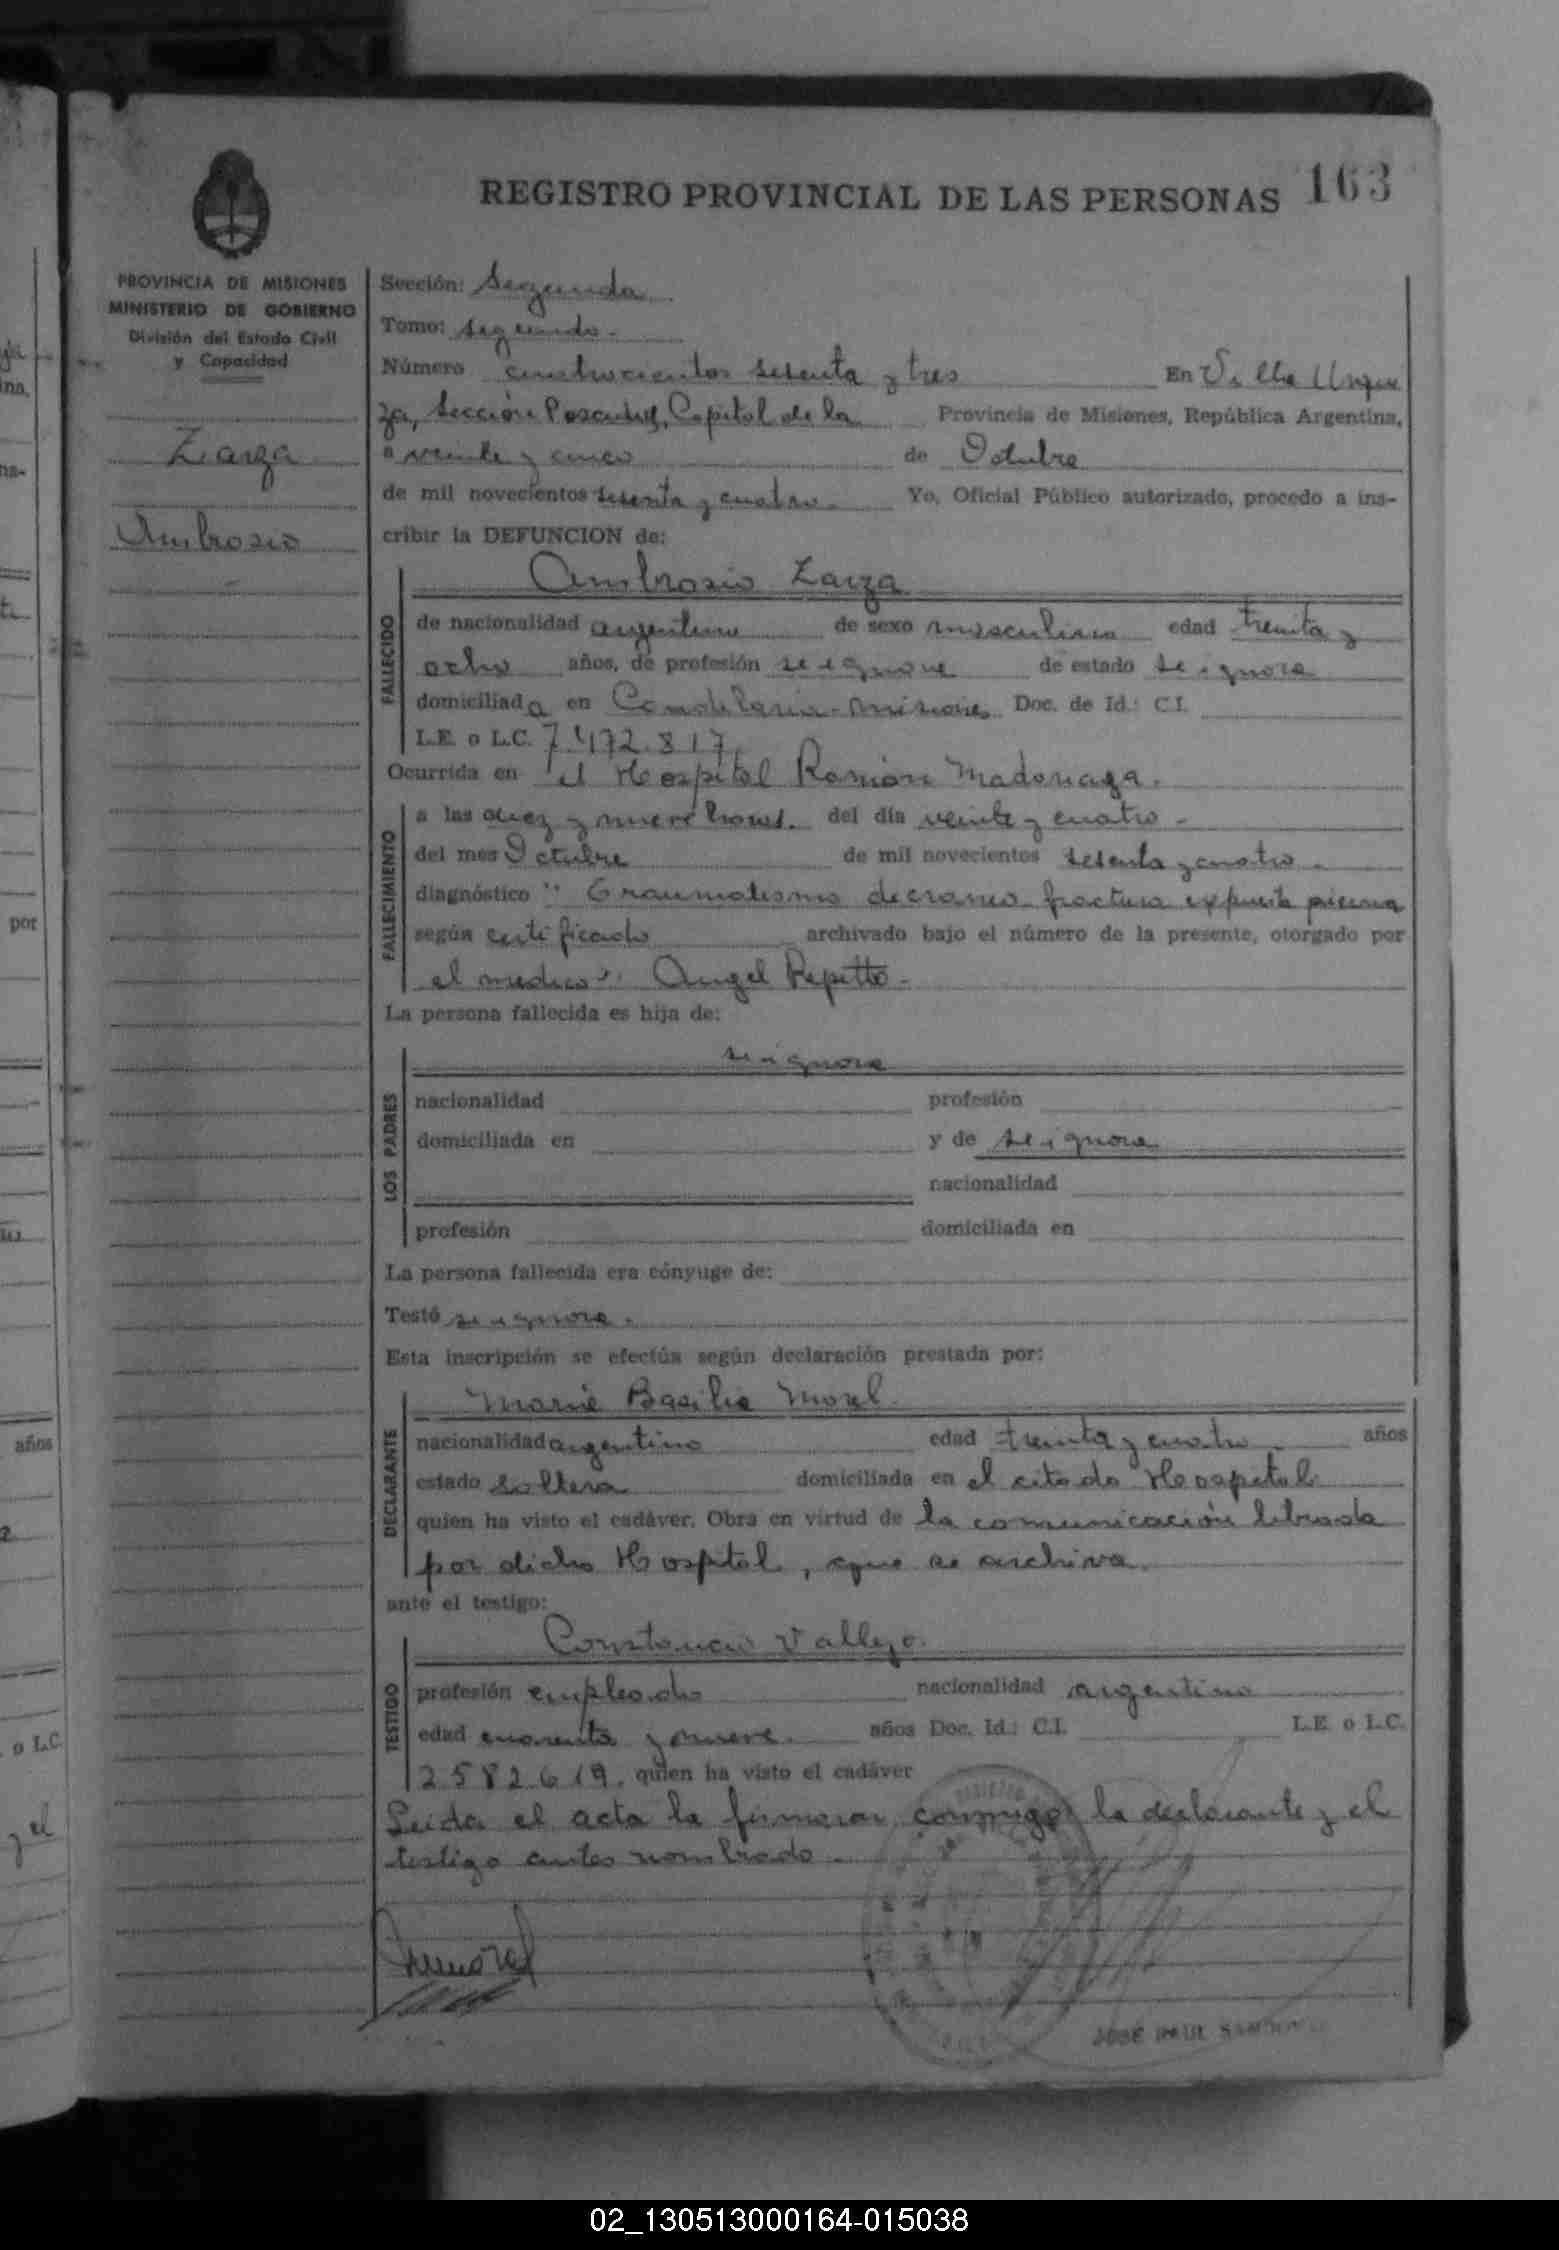 163
REGISTRO PROVINCIAL DE LAS PERSONAS
PROVINCIA DE MISIONES
MINISTERIO DE GOBIERNO
División del Estado Civil
y Capacidad
Zarza
Ambrosio
Sección: Segunda
Tomo: segundo.
Número cuatrocientos sesenta y tres En Villa Urqui
za, Sección Posadas, Capital de la Provincia de Misiones, República Argentina,
a veinte y cinco de Octubre
de mil novecientos sesenta y cuatro. Yo, Oficial Público autorizado, procedo a ins-
cribir la DEFUNCION de:
Ambrosio Zarza
FALLECIDO
de nacionalidad argentino de sexo masculino edad treinta y
ocho años, de profesión se ignore de estado se ignora
domiciliada en Candelaria - Misiones Doc. de Id.: C.I.
L.E. o L.C. 7.472.817
Ocurrida en el Hospital Ramón Madariaga.
FALLECIMIENTO
a las diez y nueve horas. del día veinte y cuatro -
del mes Octubre de mil novecientos sesenta y cuatro.
diagnóstico "Traumatismo de craneo fractura expuesta pierna
según certificado archivado bajo el número de la presente, otorgado por
el medico" Angel Repetto.
La persona fallecida es hija de:
LOS PADRES
se ignora
nacionalidad profesión
domiciliada en y de se ignora
nacionalidad
profesión domiciliada en
La persona fallecida era cónyuge de:
Testó se ignora.
Esta inscripción se efectúa según declaración prestada por:
DECLARANTE
Maria Basilia Morel
nacionalidad argentina edad treinta y cuatro. años
estado soltera domiciliada en el citado Hospital
quien ha visto el cadáver. Obra en virtud de la comunicación librada
por dicho Hospital, que se archiva.
ante el testigo:
TESTIGO
Constancio Vallejo.
profesión empleado nacionalidad argentino
edad cuarenta y nueve. años Doc. Id.: C.I. L.E. o L.C.
2582619. quien ha visto el cadáver
Leida el acta la firmaran conmigo la declarante y el
testigo antes nombrado.
JOSE RAUL
por
años
o L.C.
y el
02_130513000164-015038